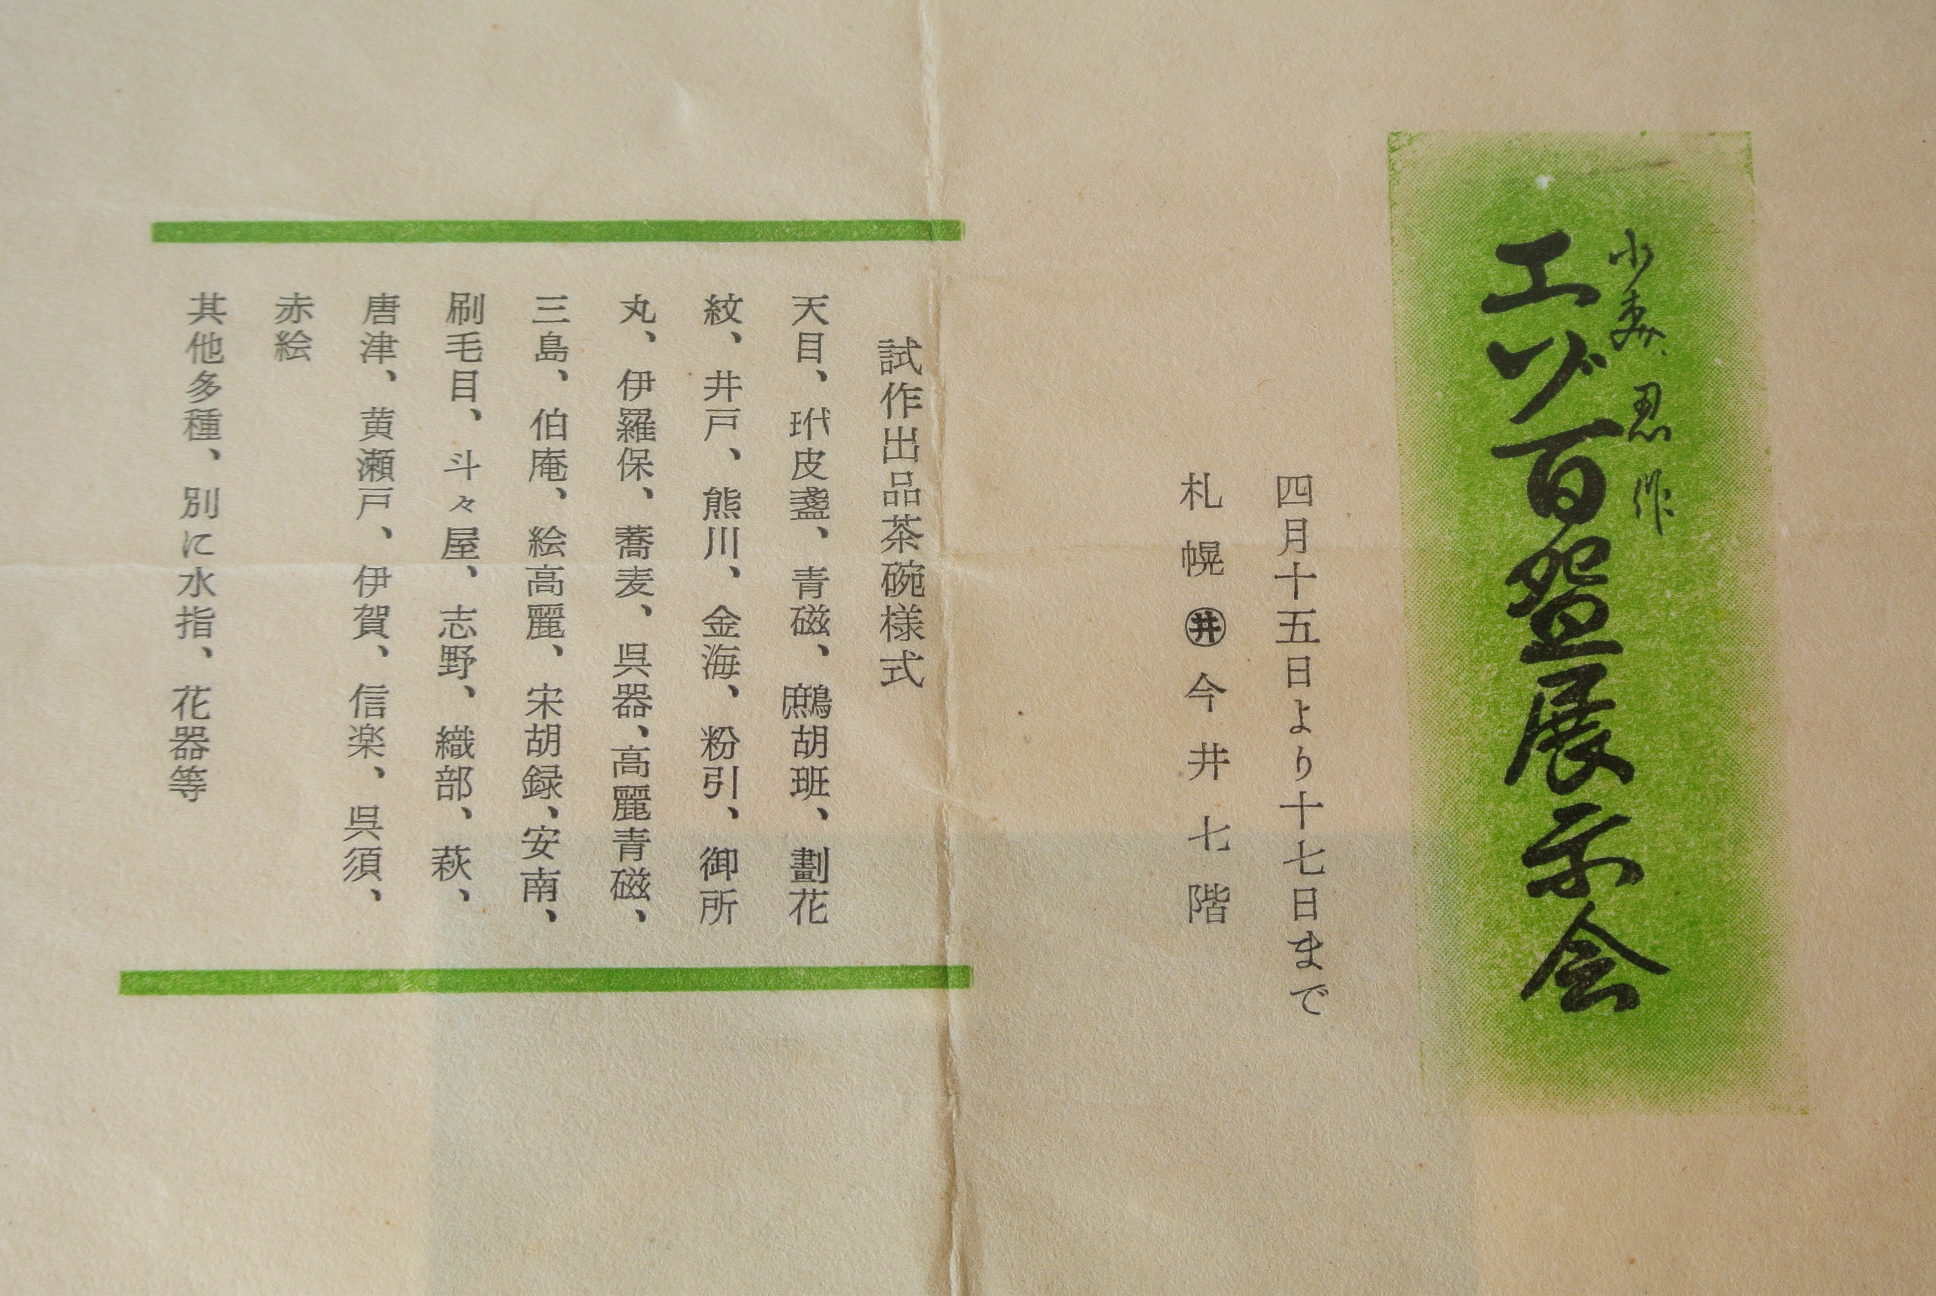 エゾ百盌展示会
忍作
四月十五日より十七日まで
札幌㊩今井七階
試作出品茶碗様式
天目、玳皮盞、青磁、鷓胡班、劃花
紋、井戸、熊川、金海、粉引、御所
丸、伊羅保、蕎麦、呉器、高麗青磁、
三島、伯庵、絵高麗、宋胡録、安南、
刷毛目、斗々屋、志野、織部、萩、
唐津、黄瀬戸、伊賀、信楽、呉須、
赤絵
其他多種、別に水指、花器等